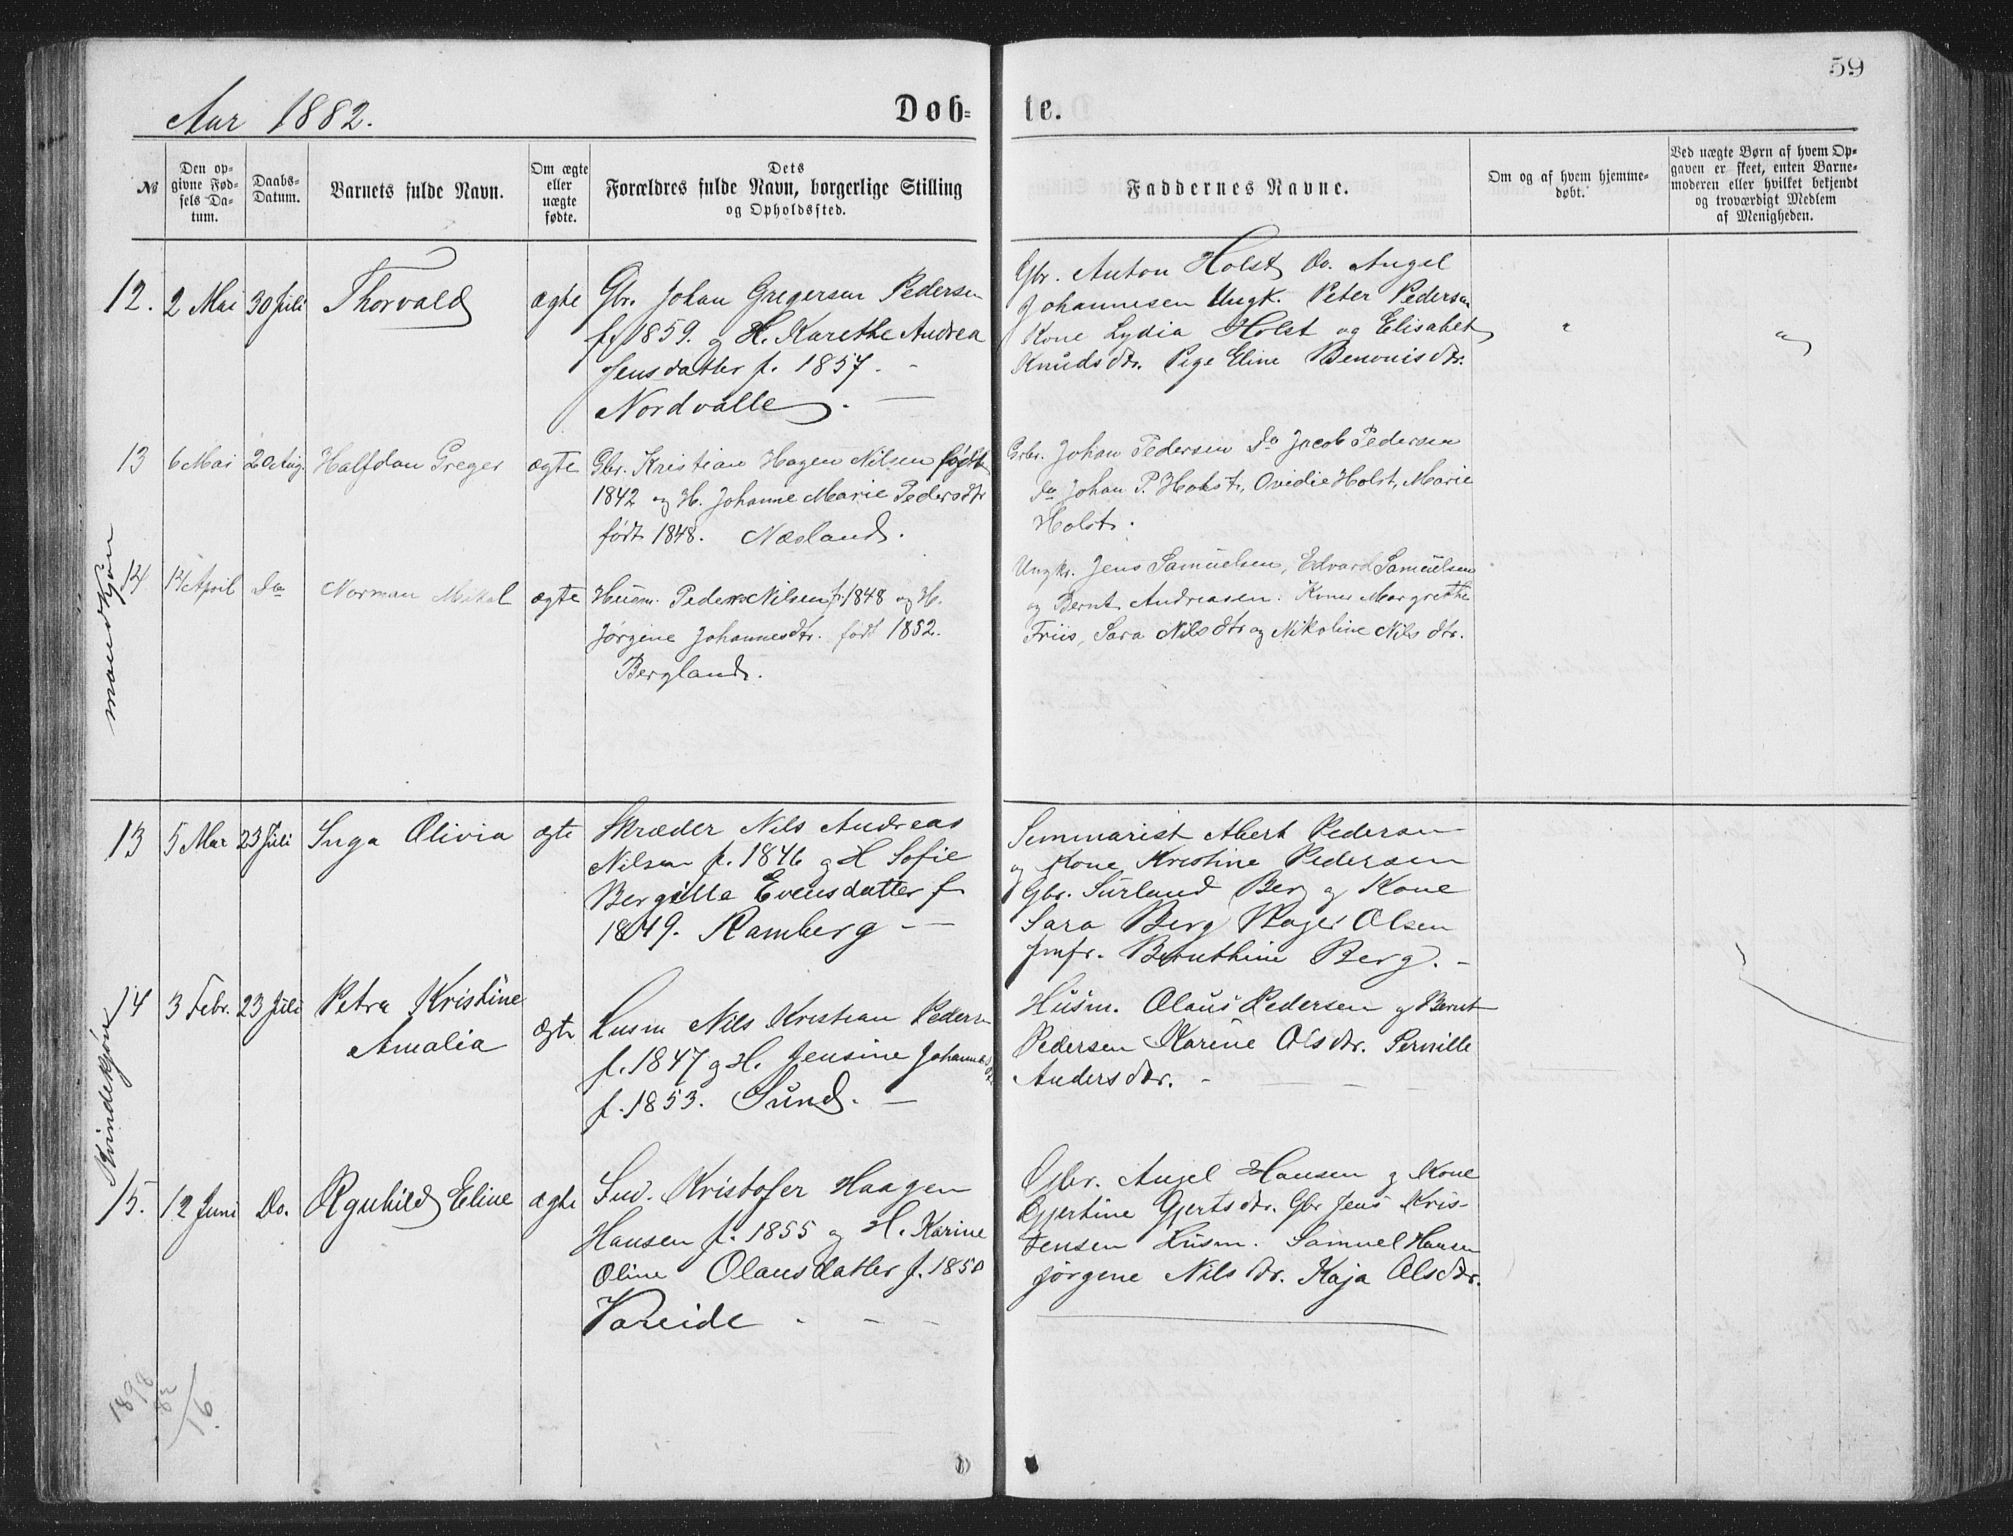 59
Aar 1882.
Døb-
te.
№
Den op-
givne Fød-
sels Da-
tum.
Daabs-
Datum.
Barnets fulde Navn.
Om ægte
eller
uægte
fødte.
Dets
Forældres fulde Navn, borgerlige Stilling
og Opholdssted.
Faddernes Navne.
Om og af hvem hjemme-
døbt.
Ved uægte Børn af hvem Op-
gaven er skeet, enten Barne-
moderen eller hvilket bekjendt
og troværdigt Medlem
af Menigheden.
mandkjøn
12. 2 Mai 30 Juli Thorvald ægte Gbr. Johan Gregersen Pedersen
f. 1859. og H. Karethe Andrea
Jensdatter f. 1857. -
Nordvalle.
Gbr. Anton Holst Do. Angel
Johannesen Ungk. Peter Pedersen
Kone Lydia Holst og Elisabet
Knudsdtr. Pige Eline Benonisdtr.
13 6 Mai 20 Aug. Halfdan Greger ægte Gbr. Kristian Hagen Nilsen født
1842 og H. Johanne Marie Pedersdtr
født 1848. Næsland.
Grbr. Johan Pedersen Do Jacob Pedersen
Do Johan P. Holst, Ovidie Holst, Marie
Holst.
14 14 April Do Norman Mikal ægte Husm. Peder Nilsen f. 1848 og H.
Jørgine Johannesdtr. født 1852.
Bergland.
Ungkr. Jens Samuelsen, Edvard Samuelsen
og Bernt Andreasen. Koner Margrethe
Friis, Sara Nilsdtr og Nikoline Nilsdtr.
Kvindekjøn
13 5 Mar 23 Juli Inga Olivia ægte Skræder Nils Andreas
Nilsen f. 1846 og H Sofie
Bergitte Evensdatter f
1849. Ramberg - -
Seminarist Abert Pedersen
og Kone Kristine Pedersen
Gbr. Surland Berg og Kone
Sara Berg Roger Olsen
Jmfr. Bernthine Berg. -
14 3 Febr. 23 Juli Petra Kristine
Amalia ægte Husm Nils Kristian Pedersen
f. 1847 og H. Jensine Johannesdtr.
f. 1853. Sund. -
Husm. Olaus Pedersen og Bernt
Pedersen Karine Olsdtr. Pernille
Andersdtr. -
15. 12 Juni Do. Ragnhild Eline ægte Ind. Kristofer Haagen
Hansen f. 1855 og H. Karine
Oline Olausdatter f. 1850
Vareide - - -
Gbr. Angel Hansen og Kone
Gjertine Gjertsdtr. Gbr Jens Kris-
tensen Husm. Samuel Hansen
Jørgene Nilsdtr. Kaja Olsdtr.
1898
82
/16